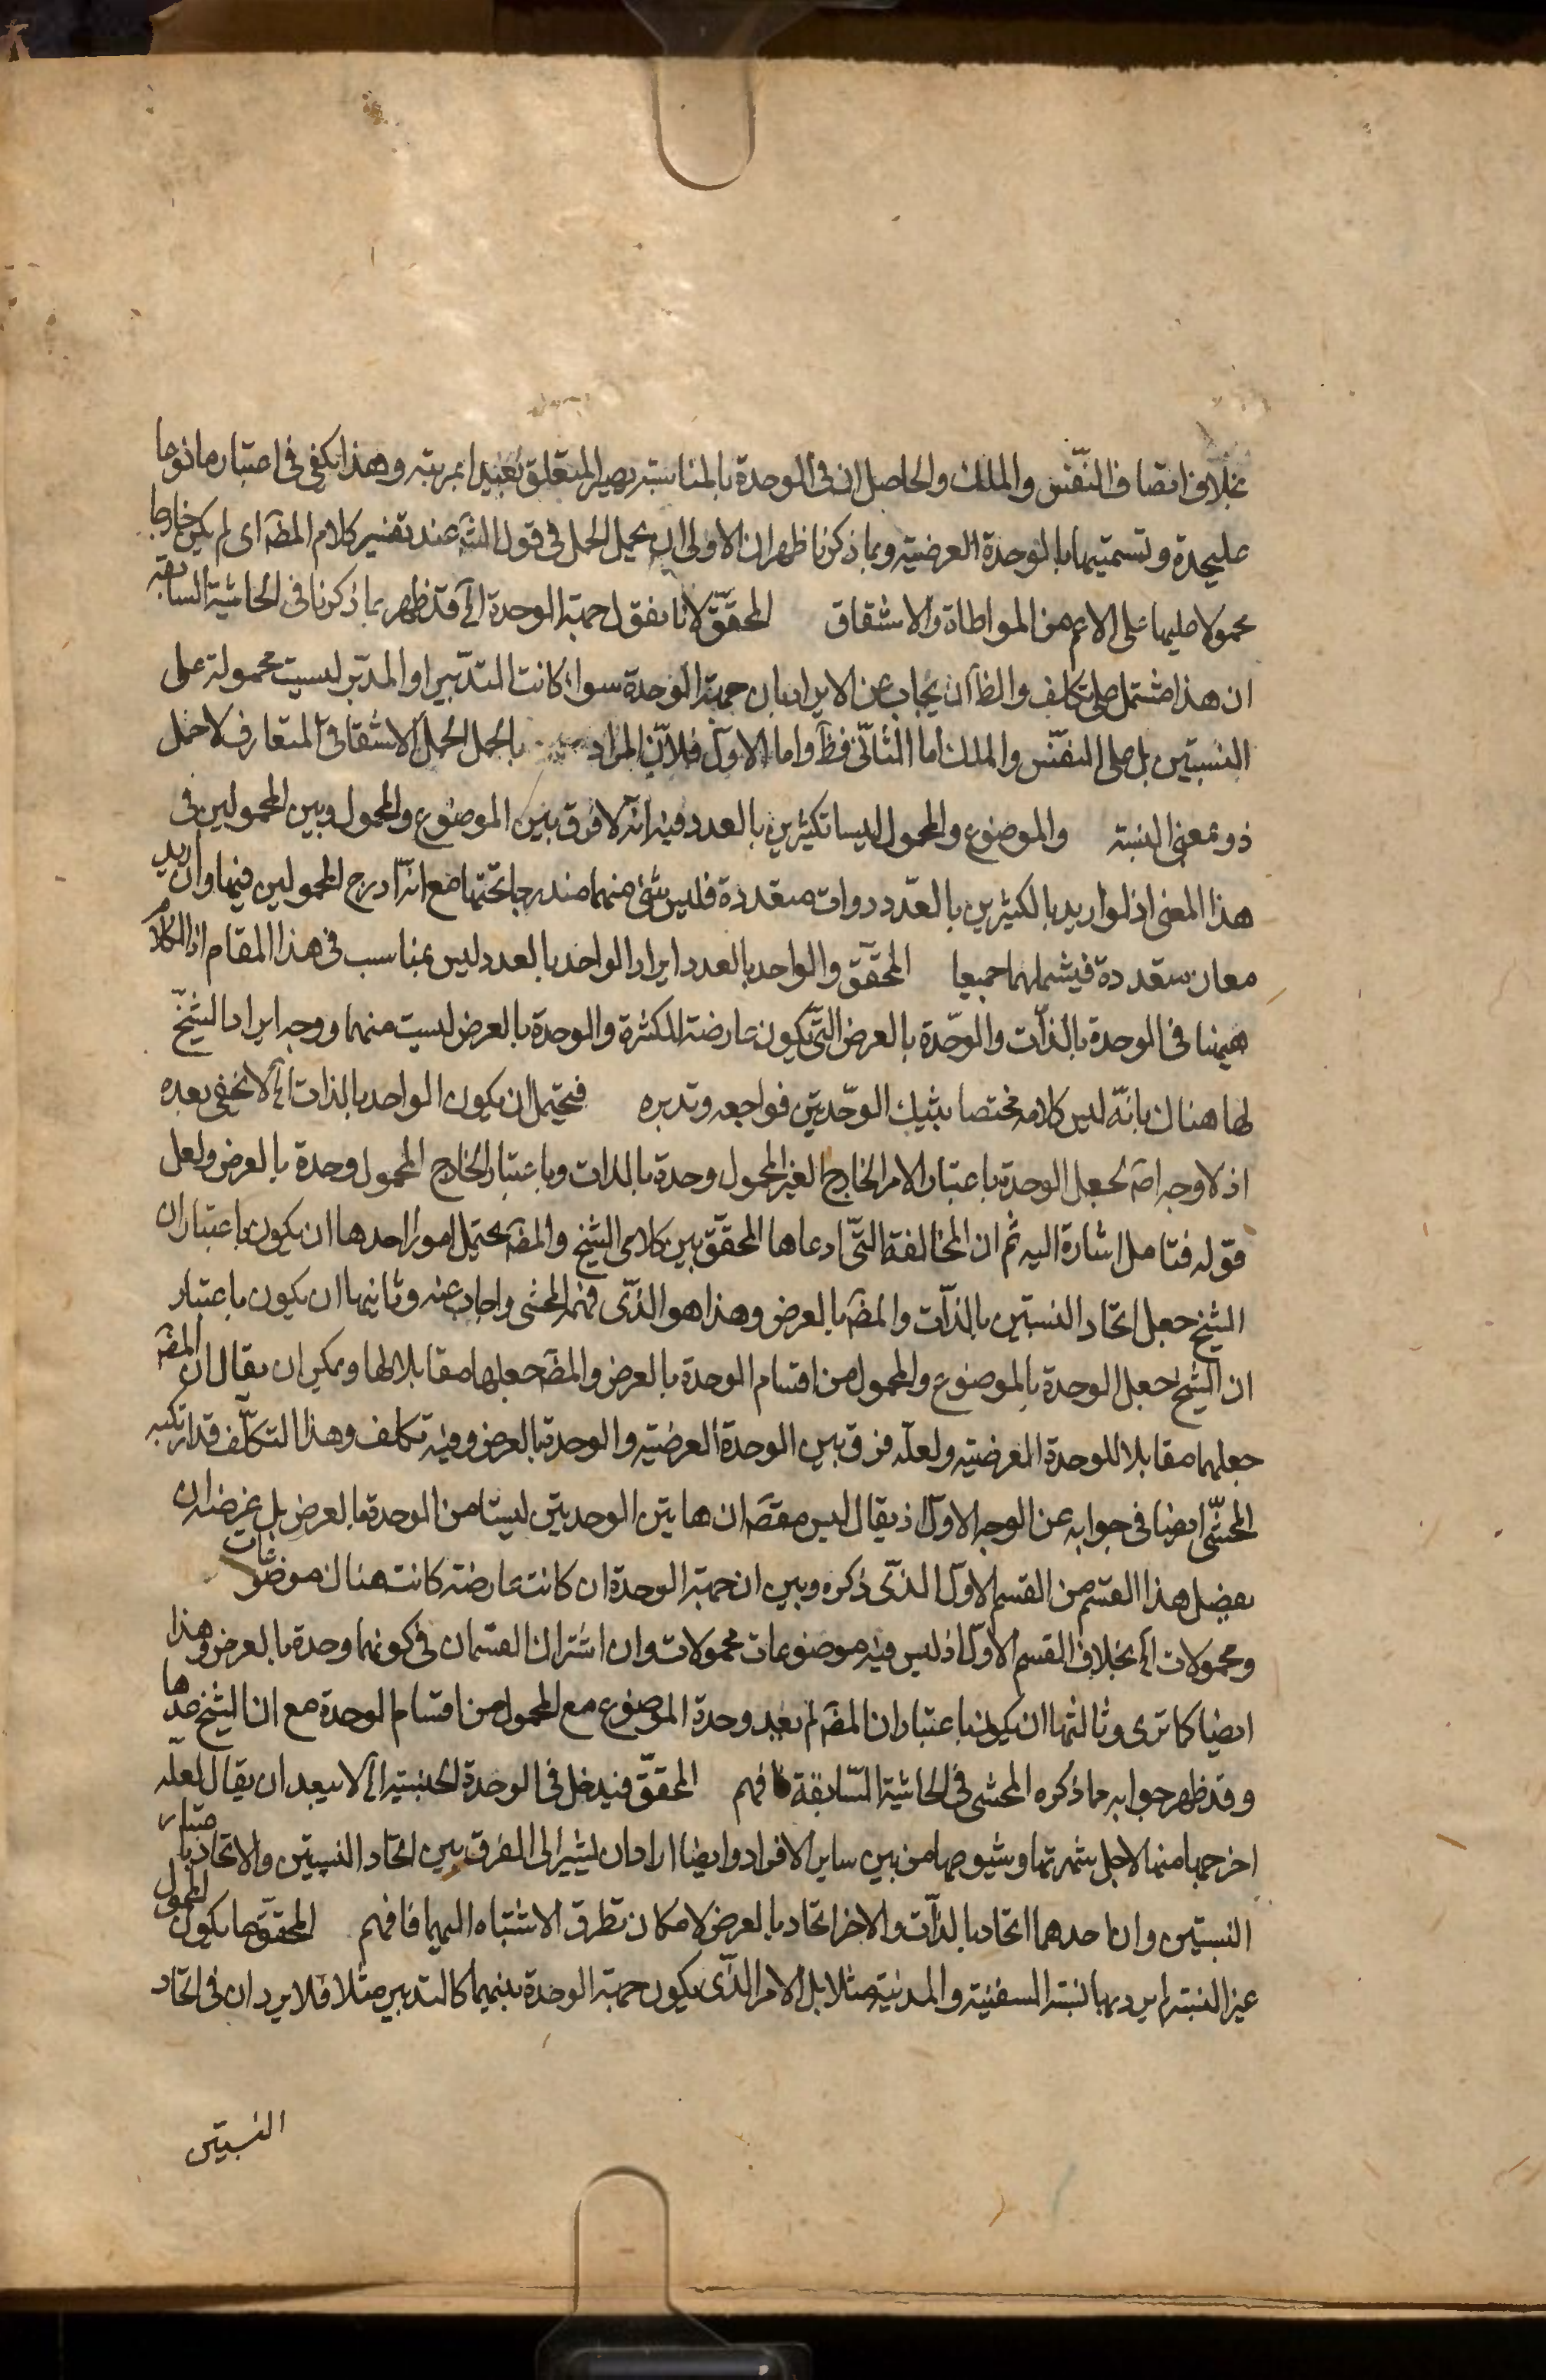 بخلاف اتصاف النفس والملك والحاصل ان فى الوحدة بالمناسبة يصير المتعلق بعيدا بمرتبة وهذا يكفى فى اعتبارها نوعا
عليحدة وتسميتها بالوحدة العرضية وبما ذكرنا ظهر ان الاولى ان يحمل الحمل فى قول الشه عند تفسير كلام المصه اى لم يكن خارجا
محمولا عليها على الاعم من المواطاة والاشتقاق المحقق لانا نقول جهة الوحدة الخ قد ظهر بما ذكرنا فى الحاشية السابقة
ان هذا مشتمل على تكلف والظا ان يجاب عن الايراد بان جهة الوحدة سواء كانت التدبير او المدبر ليست محمولة على
النسبتين بل على النفس والملك اما الثانى فظ واما الاول فلان المراد بالحمل الحمل الاشتقاقى المتعارف لا حمل
ذو بمعنى النسبة والموضوع والمحمول ليسا كثيرين بالعدد فيه انه لا فرق بين الموضوع والمحمول وبين المحمولين فى
هذا المعنى اذ لو اريد بالكثيرين بالعدد ذوات متعددة فليس شئ منهما مندرجا تحتها مع انه ادرج المحمولين فيها وان اريد
معان متعددة فيشملهما جميعا المحقق والواحد بالعدد ايراد الواحد بالعدد ليس بمناسب فى هذا المقام اذ الكلام
هيهنا فى الوحدة بالذات والوحدة بالعرض التى يكون عارضة للكثرة والوحدة بالعرض ليست منهما ووجه ايراد الشيخ
لها هناك بانه ليس كلامه مختصا بتينك الوحدتين فراجعه وتدبره فيحتمل ان يكون الواحد بالذات الخ لا يخفى بعده
اذ لا وجه اصه لجعل الوحدة باعتبار الامر الخارج الغير المحمول وحدة بالذات وباعتبار الخارج المحمول وحدة بالعرض ولعل
قوله فتامل اشارة اليه ثم ان المخالفة التى ادعاها المحقق بين كلامى الشيخ والمصه يحتمل امورا احدها ان يكون باعتبار ان
الشيخ جعل اتحاد النسبتين بالذات والمصه بالعرض وهذا هو الذى فهمه المحشى واجاب عنه وثانيها ان يكون باعتبار
ان الشيخ جعل الوحدة بالموضوع والمحمول من اقسام الوحدة بالعرض والمصه جعلها مقابلا لها ويمكن ان يقال ان المصه
جعلهما مقابلا للوحدة العرضية ولعله فرق بين الوحدة العرضية والوحدة بالعرض وفيه تكلف وهذا التكلف قد ارتكبه
المحشى ايضا فى جوابه عن الوجه الاول اذ يقال ليس مقصه ان هاتين الوحدتين ليستا من الوحدة بالعرض بل غرضه ان
يفصل هذا القسم من القسم الاول الذى ذكره وبين ان جهة الوحدة ان كانت عارضة كانت هناك موضوعات
ومحمولات الخ بخلاف القسم الاول اذ ليس فيه موضوعات محمولات وان اشترك القسمان فى كونهما وحدة بالعرض وهذا
ايضا كما ترى وثالثها ان يكون باعتبار ان المصه لم يعد وحدة الموضوع مع المحمول من اقسام الوحدة مع ان الشيخ عدها
وقد ظهر جوابه مما ذكره المحشى فى الحاشية السابقة فافهم المحقق فيدخل فى الوحدة الجنسية الخ لا يبعد ان يقال لعله
اخرجها منها لاجل شهرتها وشيوعها من بين ساير الافراد وايضا اراد ان يشير الى الفرق بين اتحاد النسبتين والاتحاد باعتبار
النسبتين وان احدهما اتحاد بالذات والاخر اتحاد بالعرض لامكان تطرق الاشتباه اليهما فافهم المحقق ما يكون المحمول
عين النسبة لم يرد بها نسبة السفينة والمدينة مثلا بل الامر الذى يكون جهة الوحدة بينهما كالتدبير مثلا فلا يرد ان فى اتحاد
النسبتين